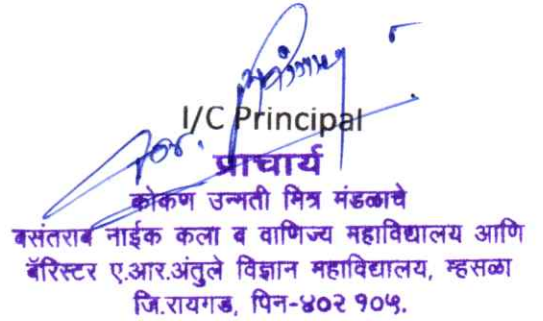 I/C Principal
प्राचार्य
कोकण उन्नती मित्र मंडळाचे
वसंतराव नाईक कला व वाणिज्य महाविद्यालय आणि
बॅरिस्टर ए.आर.अंतुले विज्ञान महाविद्यालय, म्हसळा
जि.रायगड, पिन-४०२ १०५.